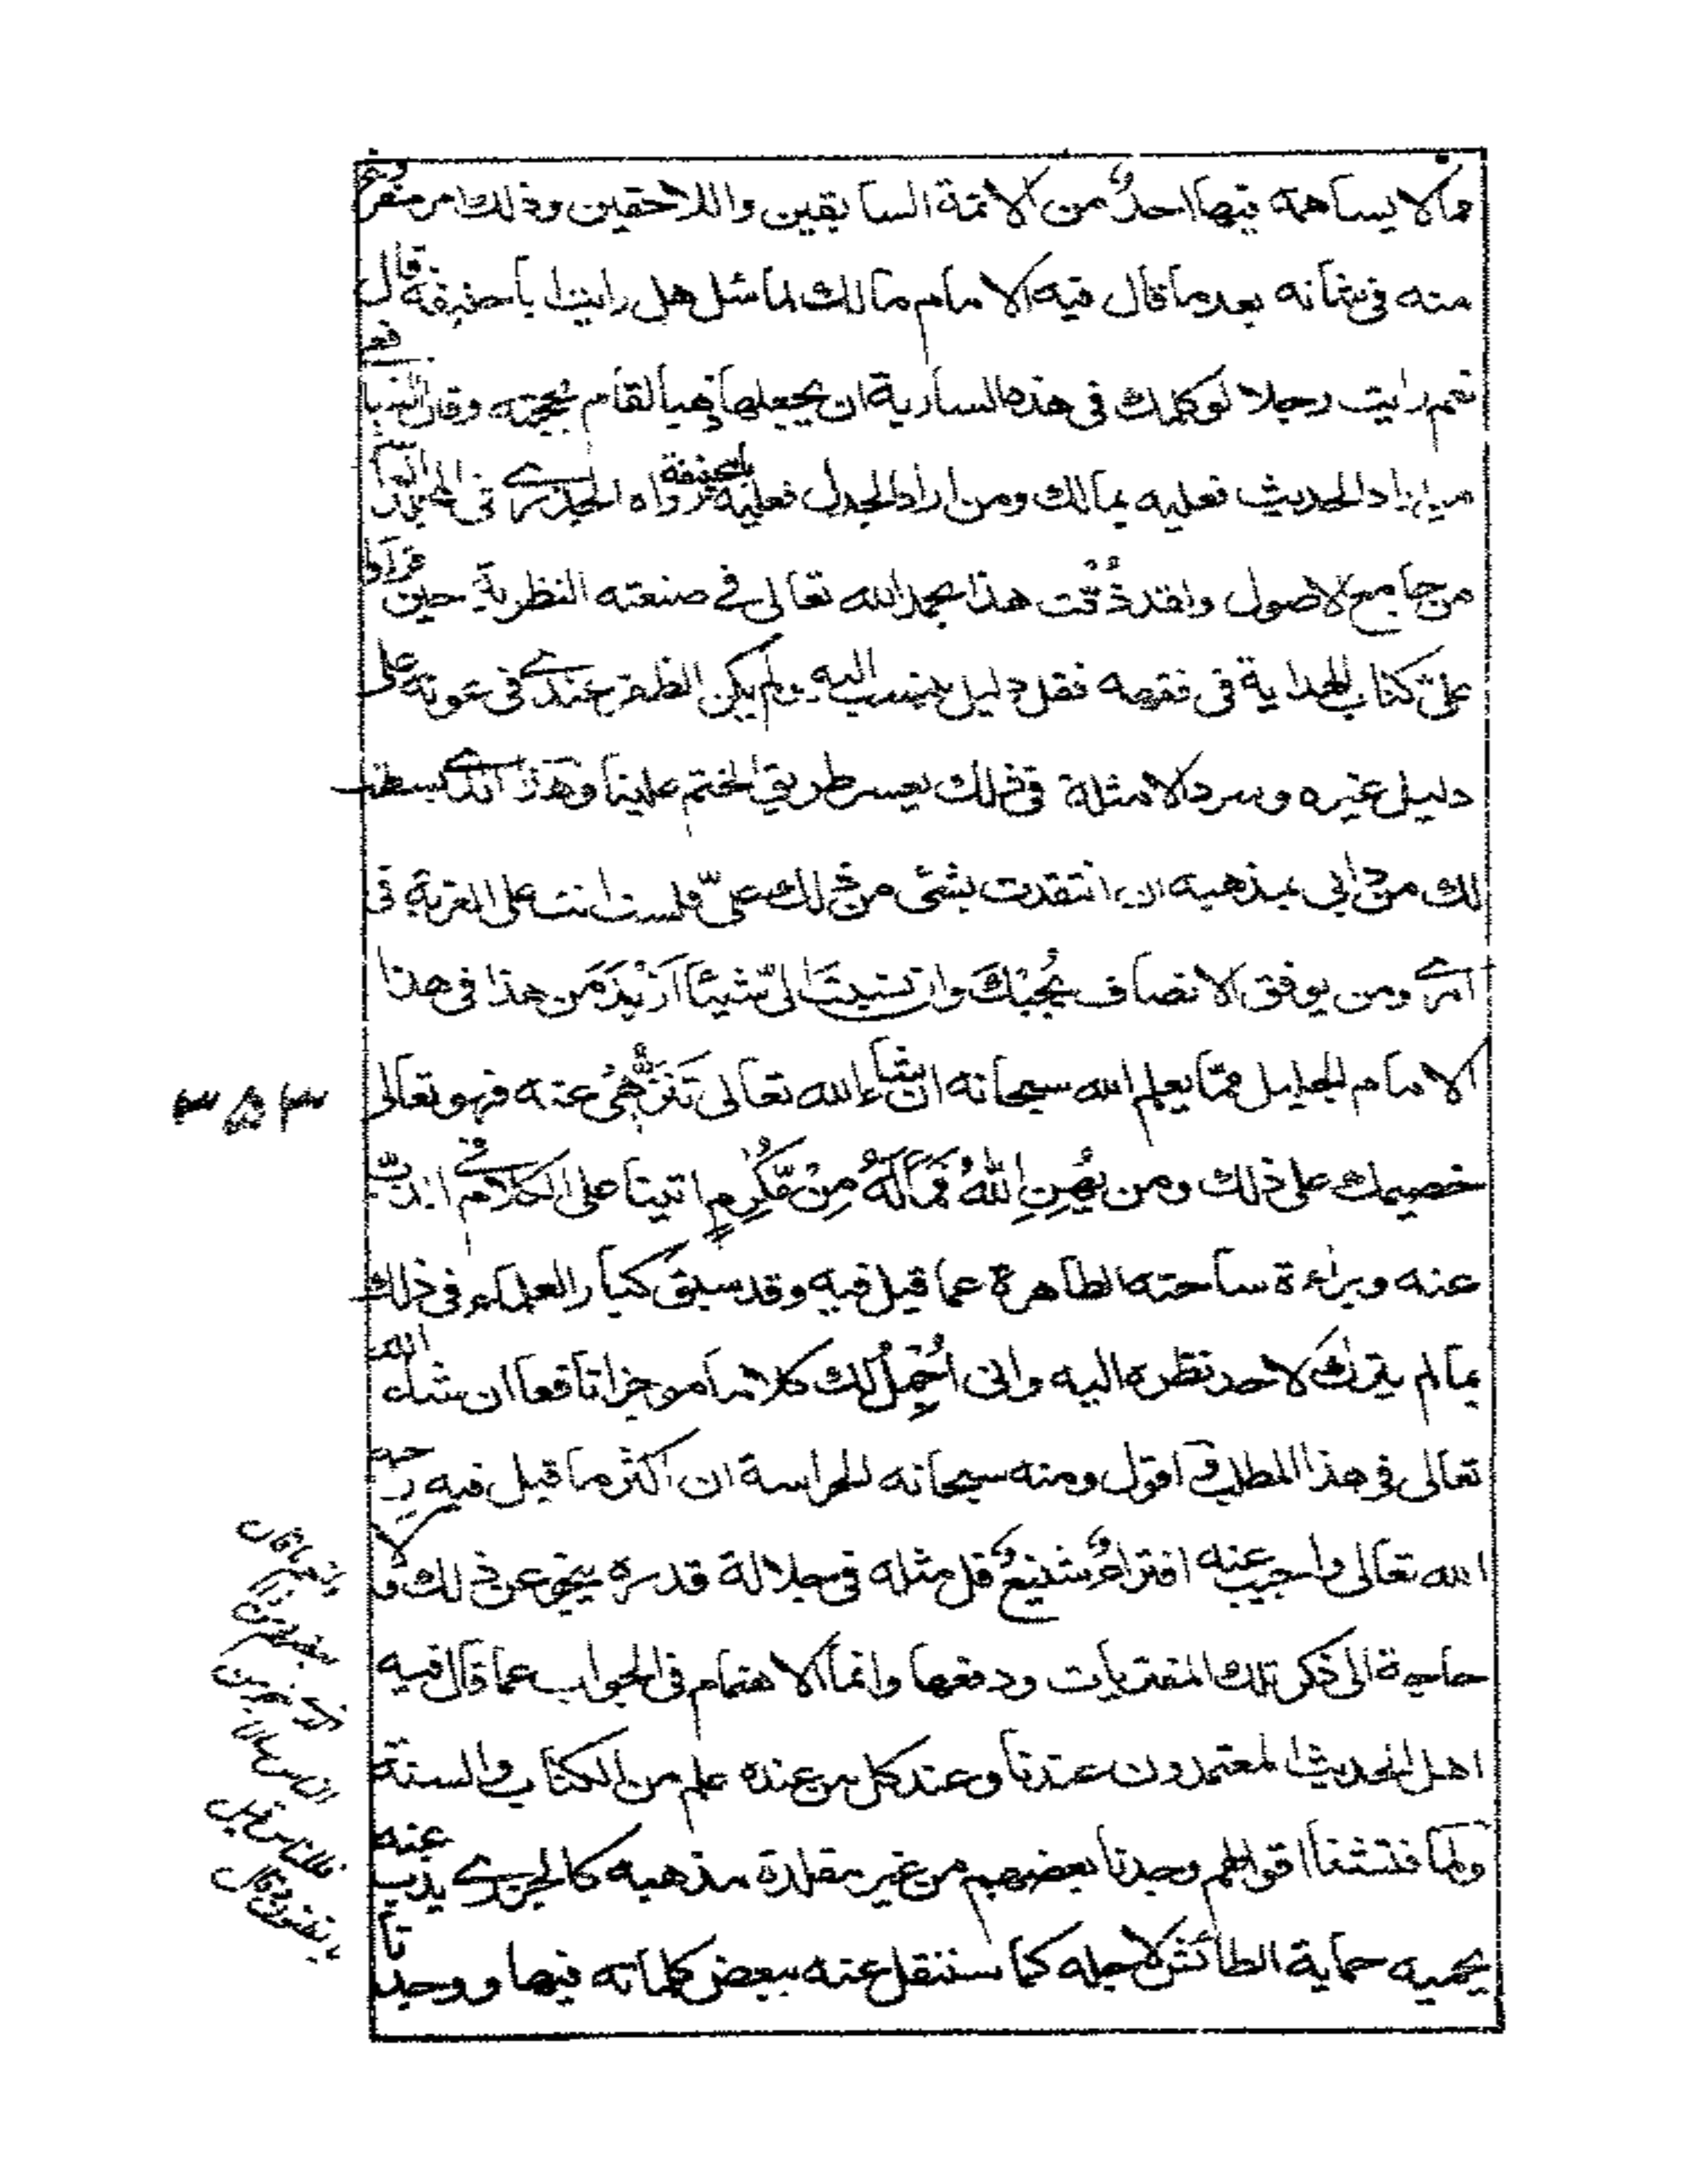 مما لا يساهمه فيها احدٌ من الائمة السابقين واللاحقين وذلك امر مفروغ
منه فى شانه بعد ما قال فيه الامام مالك لما سئل هل رايت ابا حنيفة قال
نعم رايت رجلا لو كلمك فى هذه السارية ان يجعلها ذهبا لقام بحجته وقال
من اراد الحديث فعليه بمالك ومن اراد الجدل فعليه بابى حنيفة رواه الجزرى فى
من جامع الاصول ولقد ذُقت هذا بحمد الله تعالى فى صنعته النظرية حين
على كتاب الهداية فى فقهه فقل دليل ينسب اليه لم يكن الظفر عندى فى عونه على
دليل غيره وسرد الامثلة فى ذلك يعسر طريق الختم علينا وهذا الذى بسطت
لك من دابى بمذهبه ان انتقدت بشئ من ذلك علىّ فلست انت على المرية فى
امرى ومن يوفق الانصاف يُجبْكَ وان نسبتَ الىّ شيئا اَزْيَدَ مَن هذا فى هذا
الامام الجليل مما يعلم الله سبحانه ان شاء الله تعالى تَنَزُّهِى عنه فهو تعالى
خصيمك على ذلك ومن يُهِنِ اللهُ فَمَا لَهُ مِنْ مُّكْرِمٍ اتينا على الكلام فى الذبّ
عنه وبراءة ساحته الطاهرة عما قيل فيه وقد سبق كبار العلماء فى ذلك
بما لم يترك لاحد نظره اليه وانى اُجْمِلُ لك كلاما موجزا نافعا ان شاء الله
تعالى فى هذا المطلب فاقول ومنه سبحانه الحراسة ان اكثر ما قيل فيه رحمه
الله تعالى واجيب عنه افتراءٌ شنيعٌ قل مثله فى جلالة قدره ينجو عن ذلك ولا
حاجة الى ذكر تلك المفتريات ودفعها وانما الاهتمام فى الجواب عما قال فيه
اهل الحديث المعتمدون عندنا وعند كل من عنده علم من الكتاب والسنة
ولما فتشنا اقوالهم وجدنا بعضهم من غير مقلدة مذهبه كالجزرى يذب عنه
يحميه حماية الطائش لاجله كما سننقل عنه ببعض كلماته فيها ووجدنا
٣٥٣